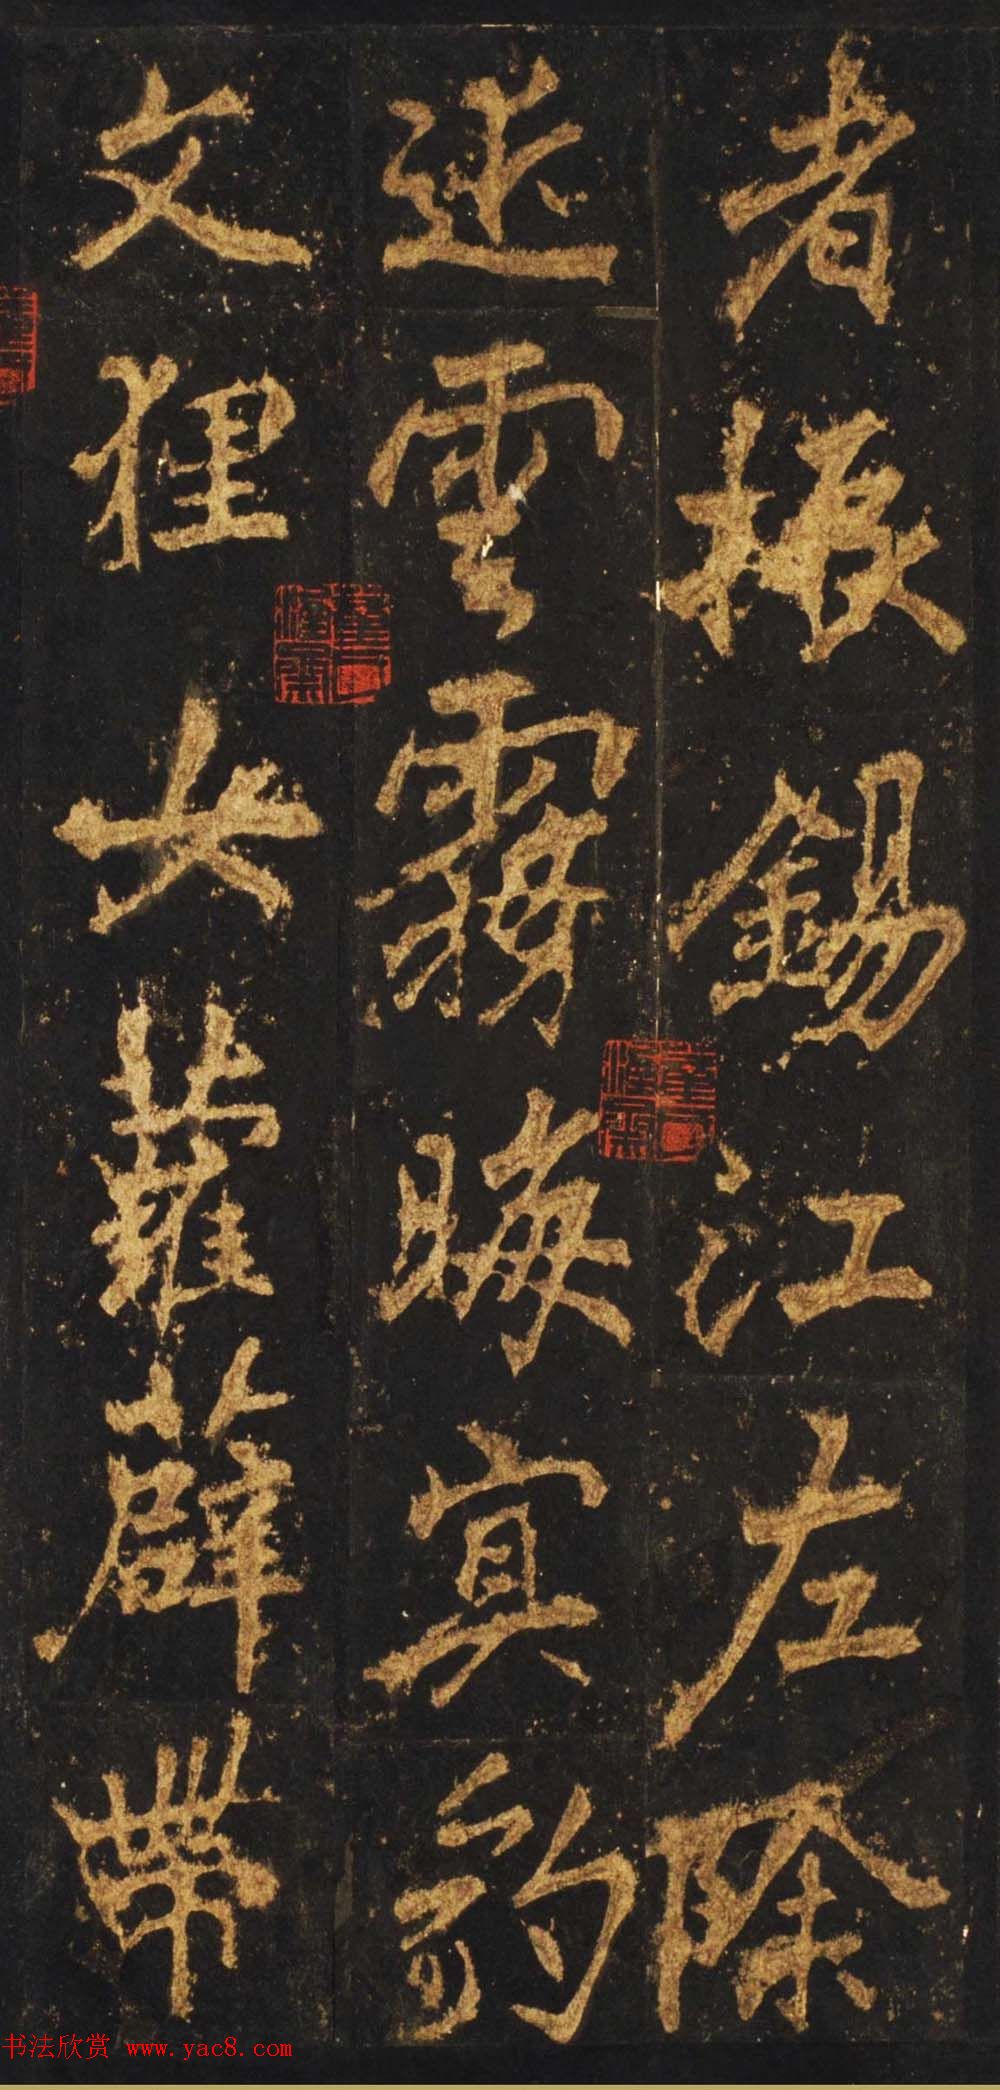 者振錫江左除
迹雲霧晦冥豹
文狸女蘿薜帶
书法欣赏 www.yac8.com